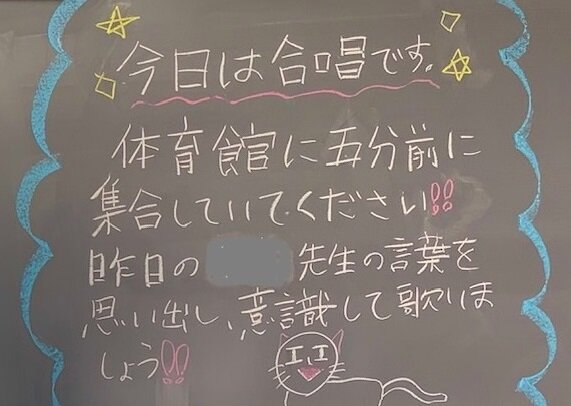 今日は合唱です。
体育館に五分前に
集合していてください!!
昨日の 先生の言葉を
思い出し、意識して歌いま
しょう!!